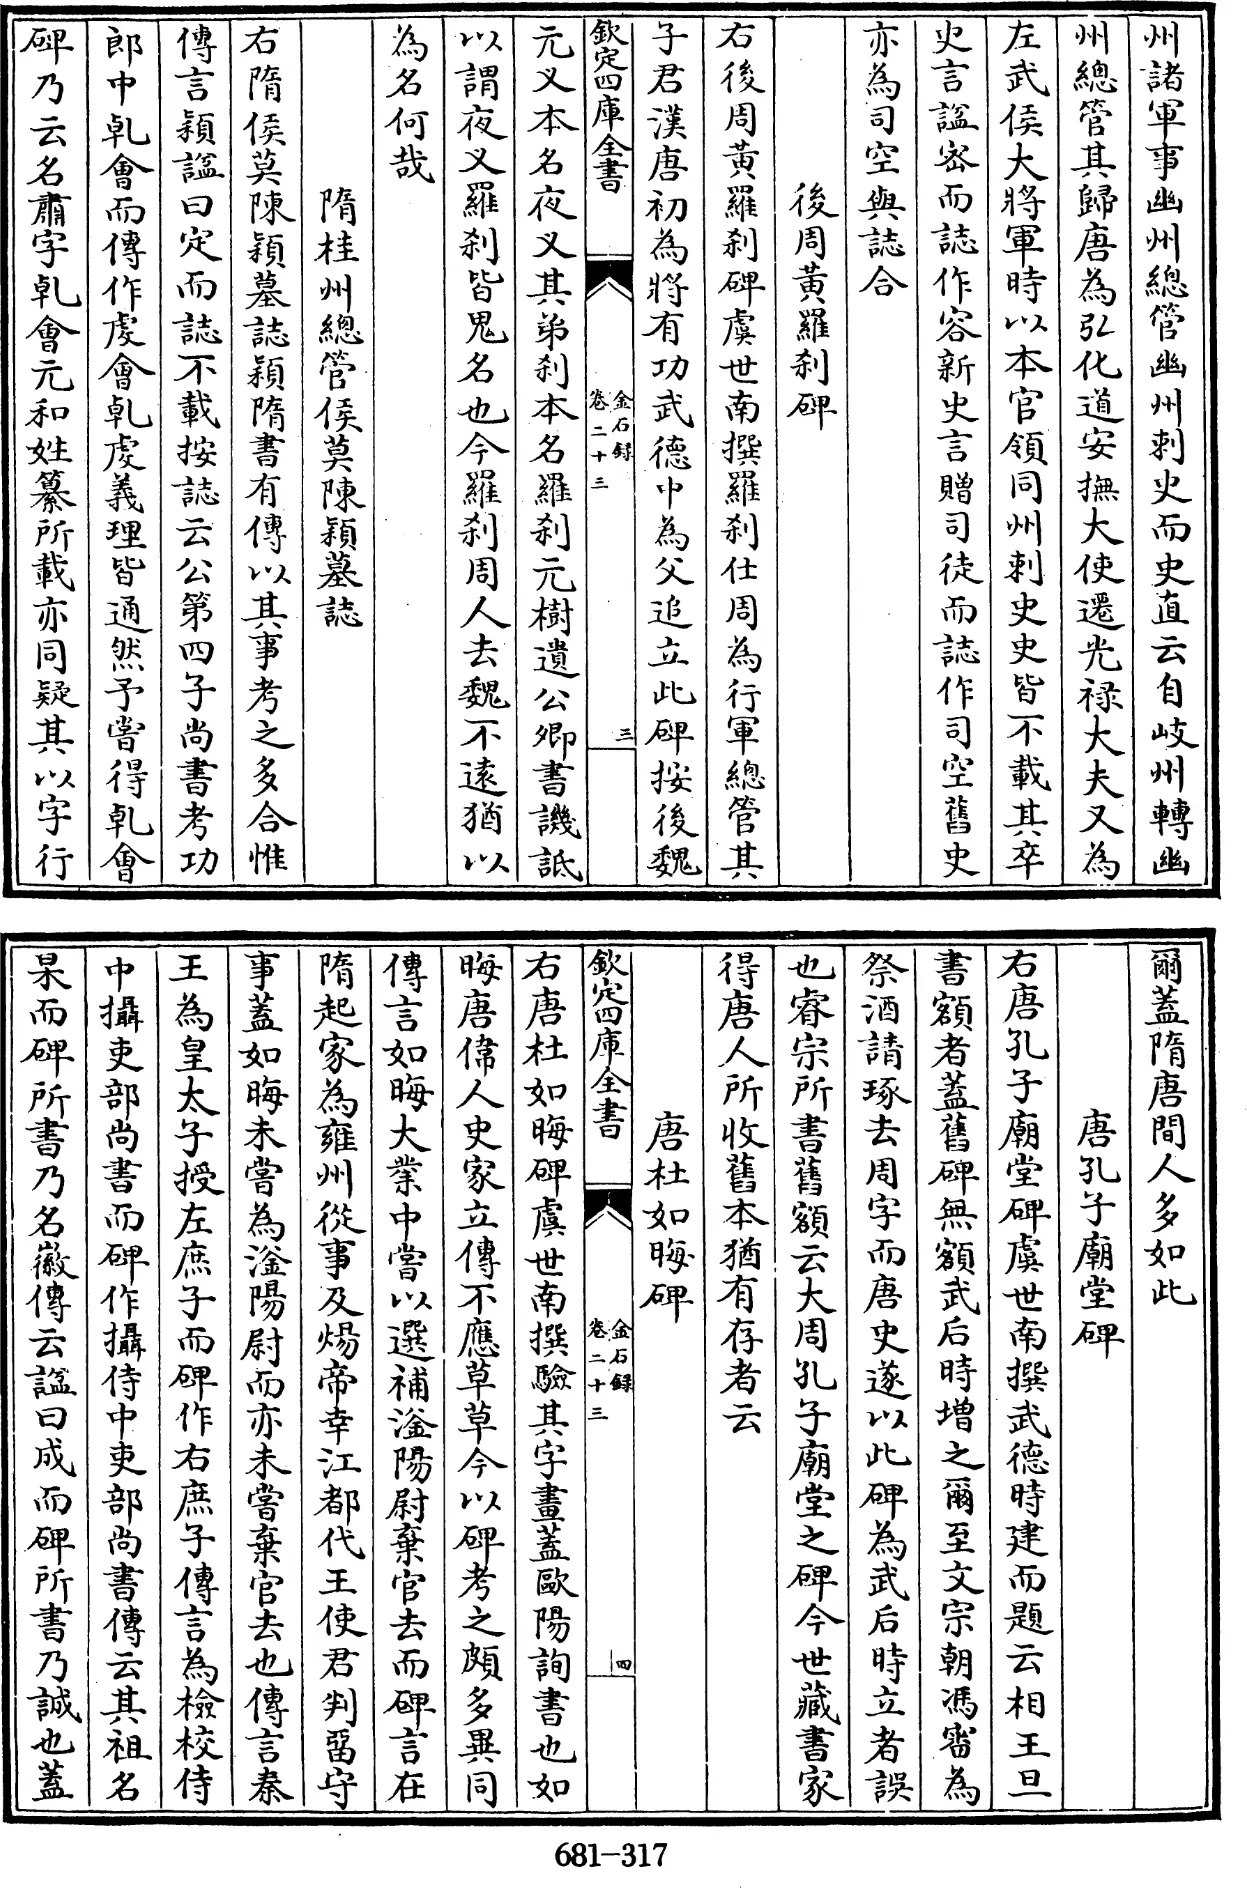 州諸軍事幽州總管幽州刺史而史直云自岐州轉幽
州總管其歸唐為弘化道安撫大使遷光祿大夫又為
左武侯大將軍時以本官領同州刺史史皆不載其卒
史言諡密而誌作容新史言贈司徒而誌作司空舊史
亦為司空與誌合
後周黃羅刹碑
右後周黃羅刹碑虞世南撰羅刹仕周為行軍總管其
子君漢唐初為將有功武德中為父追立此碑按後魏
欽定四庫全書
金石錄
卷二十三
三
元义本名夜义其弟刹本名羅刹元樹遺公卿書譏詆
以謂夜义羅刹皆鬼名也今羅刹周人去魏不遠猶以
為名何哉
隋桂州總管侯莫陳頴墓誌
右隋侯莫陳頴墓誌頴隋書有傳以其事考之多合惟
傳言頴諡曰定而誌不載按誌云公第四子尚書考功
郎中乹會而傳作虔會乹虔義理皆通然予嘗得乹會
碑乃云名肅字乹會元和姓纂所載亦同疑其以字行
爾蓋隋唐間人多如此
唐孔子廟堂碑
右唐孔子廟堂碑虞世南撰武德時建而題云相王旦
書額者蓋舊碑無額武后時增之爾至文宗朝馮審為
祭酒請琢去周字而唐史遂以此碑為武后時立者誤
也睿宗所書舊額云大周孔子廟堂之碑今世藏書家
得唐人所收舊本猶有存者云
唐杜如晦碑
欽定四庫全書
金石錄
卷二十三
四
右唐杜如晦碑虞世南撰驗其字畫蓋歐陽詢書也如
晦唐偉人史家立傳不應草草今以碑考之頗多異同
傳言如晦大業中嘗以選補滏陽尉棄官去而碑言在
隋起家為雍州從事及煬帝幸江都代王使君判留守
事蓋如晦未嘗為滏陽尉而亦未嘗棄官去也傳言秦
王為皇太子授左庶子而碑作右庶子傳言為檢校侍
中攝吏部尚書而碑作攝侍中吏部尚書傳云其祖名
杲而碑所書乃名徽傳云諡曰成而碑所書乃誠也蓋
681-317